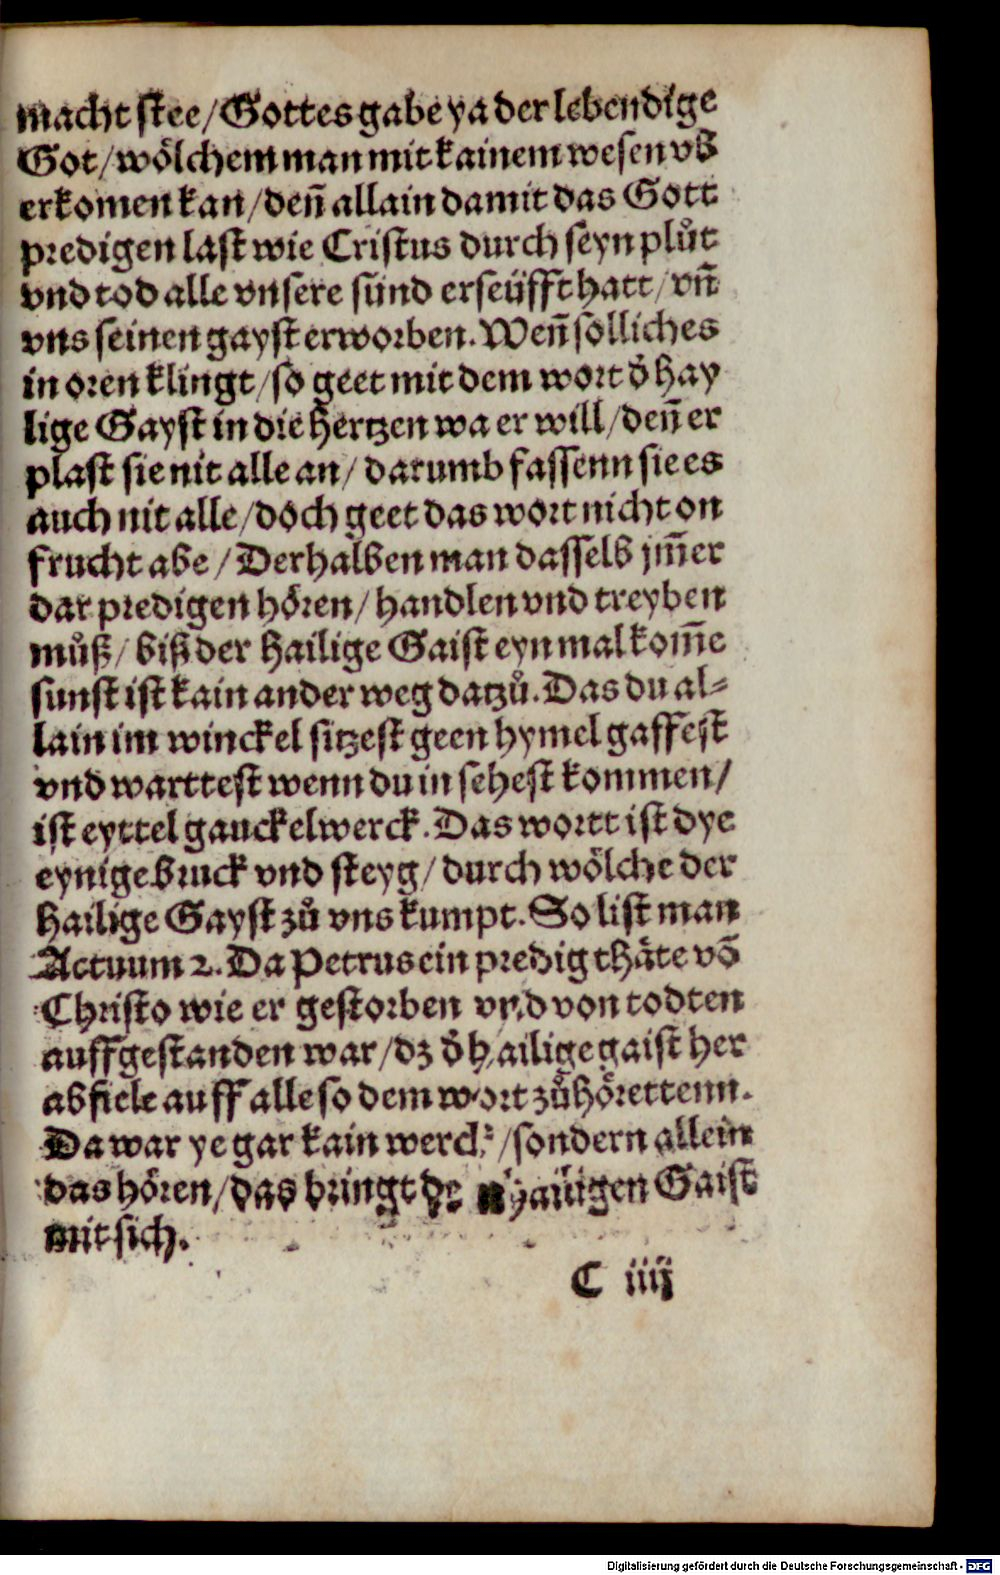 macht stee/Gottes gabe ya der lebendige
Got/wölchem man mit kainem wesen vß
erkomen kan/deñ allain damit das Gott
predigen last wie Cristus durch seyn plůt
vnd tod alle vnsere sünd erseüfft hatt/vñ
vns seinen gayst erworben. Weñ solliches
in oren klingt/so geet mit dem wort ð hay
lige Gayst in die hertzen wa er will/deñ er
plast sie nit alle an/darumb fassenn sie es
auch nit alle/doch geet das wort nicht on
frucht abe/Derhalben man dasselb jm̃er
dar predigen hören/handlen vnd treyben
můß/biß der hailige Gaist eyn mal kom̃e
sunst ist kain ander weg datzů. Das du al⸗
lain im winckel sitzest geen hymel gaffest
vnd warttest wenn du in sehest kommen/
ist eyttel gauckelwerck. Das wortt ist dye
eynige bruck vnd steyg/durch wölche der
hailige Gayst zů vns kumpt. So list man
Actuum 2. Da Petrus ein predig thäte võ
Christo wie er gestorben vnd von todten
auffgestanden war/dz ð hailige gaist her
ab fiele auff alle so dem wort zůhörettenn.
Da war ye gar kain werck/sondern allein
das hören/das bringt den hailigen Gaist
mit sich.
C iiij
Digitalisierung gefördert durch die Deutsche Forschungsgemeinschaft - DFG